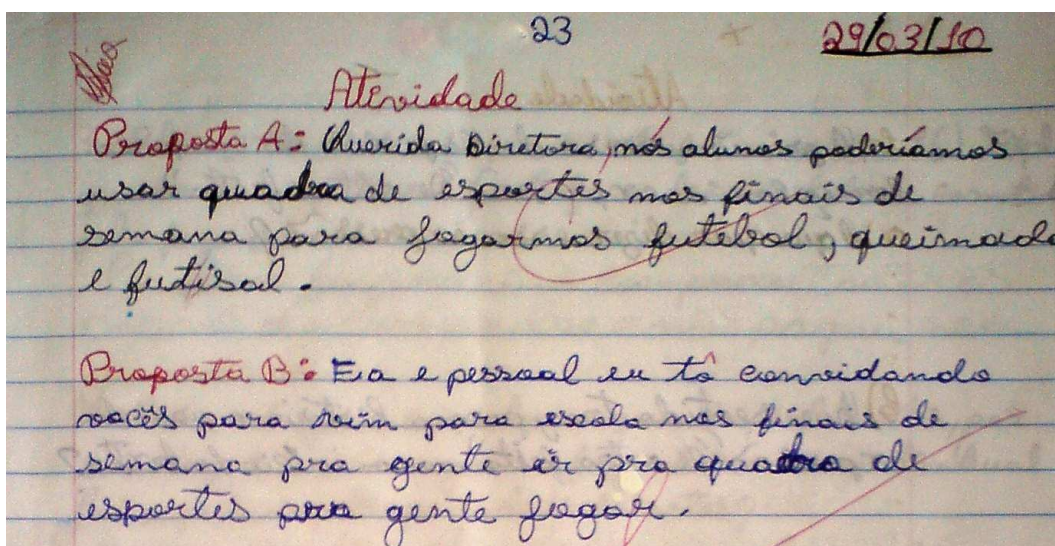 23
29/03/10
Atividade
Proposta A: Querida Diretora, nós alunos poderíamos
usar quadra de esportes nos finais de
semana para jogarmos futebol, queimada
e futisal.
Proposta B: Eia e pessoal eu tô convidando
vocês para vim para escola nos finais de
semana pra gente ir pra quadra de
esportes pra gente jogar.